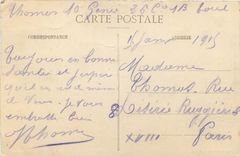 Thomas 10 Genie 26 Cie 1B Toul
CARTE POSTALE
CORRESPONDANCE
ADRESSE
5 Janv 1915
Toujours en bonne
santé et j'espère
qu'il en est de même
de vous. Je vous
embrasse bien
Thomas
Madame
Thomas Rue
Désirée Ruggieri 8
XVIII Paris